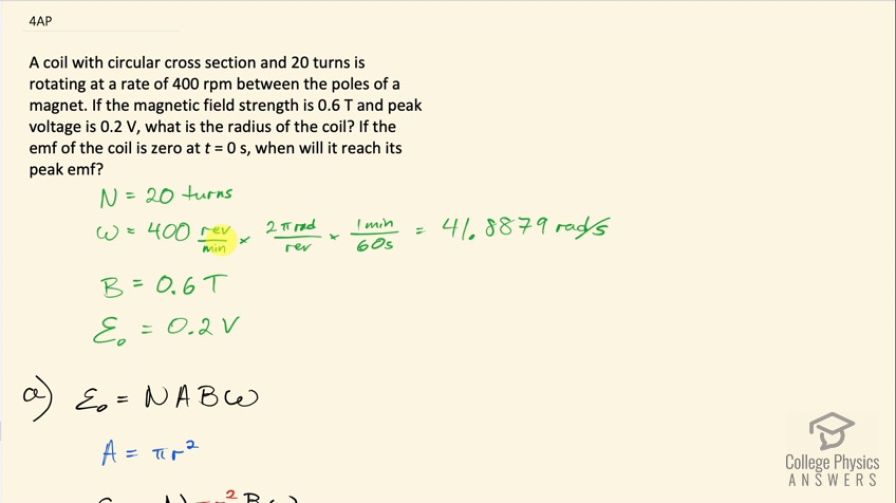 4AP
A coil with circular cross section and 20 turns is
rotating at a rate of 400 rpm between the poles of a
magnet. If the magnetic field strength is 0.6 T and peak
voltage is 0.2 V, what is the radius of the coil? If the
emf of the coil is zero at t = 0 s, when will it reach its
peak emf?
N = 20 turns
ω = 400 rev/min × 2π rad/rev × 1 min/60s = 41.8879 rad/s
B = 0.6 T
ℰ₀ = 0.2 V
a) ℰ₀ = NABω
A = πr²
College Physics
ANSWERS